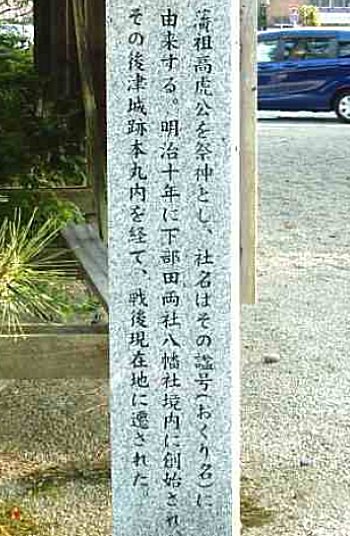 藩祖高虎公を祭神とし、社名はその諡号(おくり名)に
由来する。明治十年に下部田両社八幡社境内に創始され、
その後津城跡本丸内を経て、戦後現在地に遷された。